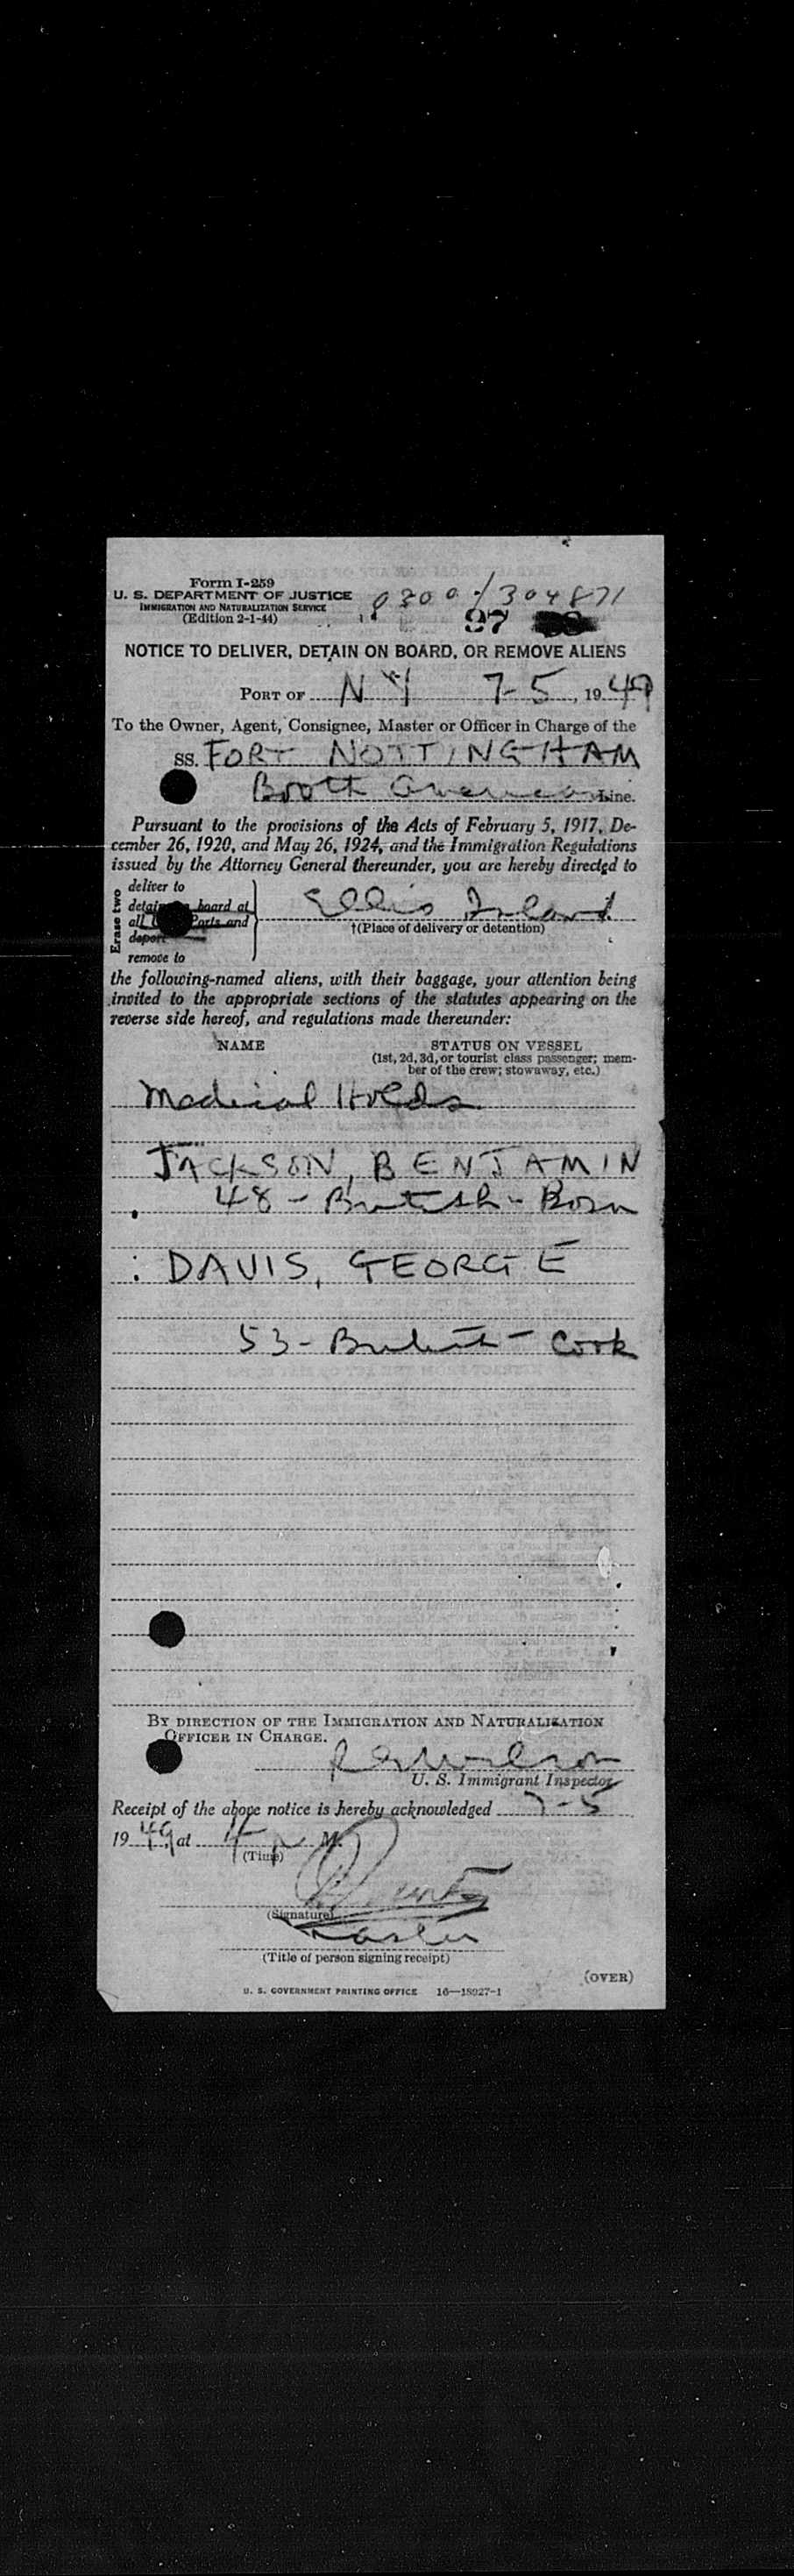 Form I-259
U. S. DEPARTMENT OF JUSTICE
IMMIGRATION AND NATURALIZATION SERVICE
(Edition 2-1-44)
0300/304871
97
NOTICE TO DELIVER, DETAIN ON BOARD, OR REMOVE ALIENS
PORT OF N Y 7-5, 1949
To the Owner, Agent, Consignee, Master or Officer in Charge of the
SS. FORT NOTTINGHAM
Booth American Line.
Pursuant to the provisions of the Acts of February 5, 1917, De-
cember 26, 1920, and May 26, 1924, and the Immigration Regulations
issued by the Attorney General thereunder, you are hereby directed to
Erase two
deliver to
detain board at
all Ports and
deport
remove to
Ellis Island
†(Place of delivery or detention)
the following-named aliens, with their baggage, your attention being
invited to the appropriate sections of the statutes appearing on the
reverse side hereof, and regulations made thereunder:
NAME STATUS ON VESSEL
(1st, 2d, 3d, or tourist class passenger; mem-
ber of the crew; stowaway, etc.)
Medical Holds
JACKSON, BENJAMIN
48 - British - Bosn
DAVIS, GEORGE
53 - British - Cook
BY DIRECTION OF THE IMMIGRATION AND NATURALIZATION
OFFICER IN CHARGE.
U. S. Immigrant Inspector
Receipt of the above notice is hereby acknowledged 7-5
1949, at 4 p M.
(Time)
(Signature)
Master
(Title of person signing receipt)
(OVER)
U. S. GOVERNMENT PRINTING OFFICE 16—18927-1